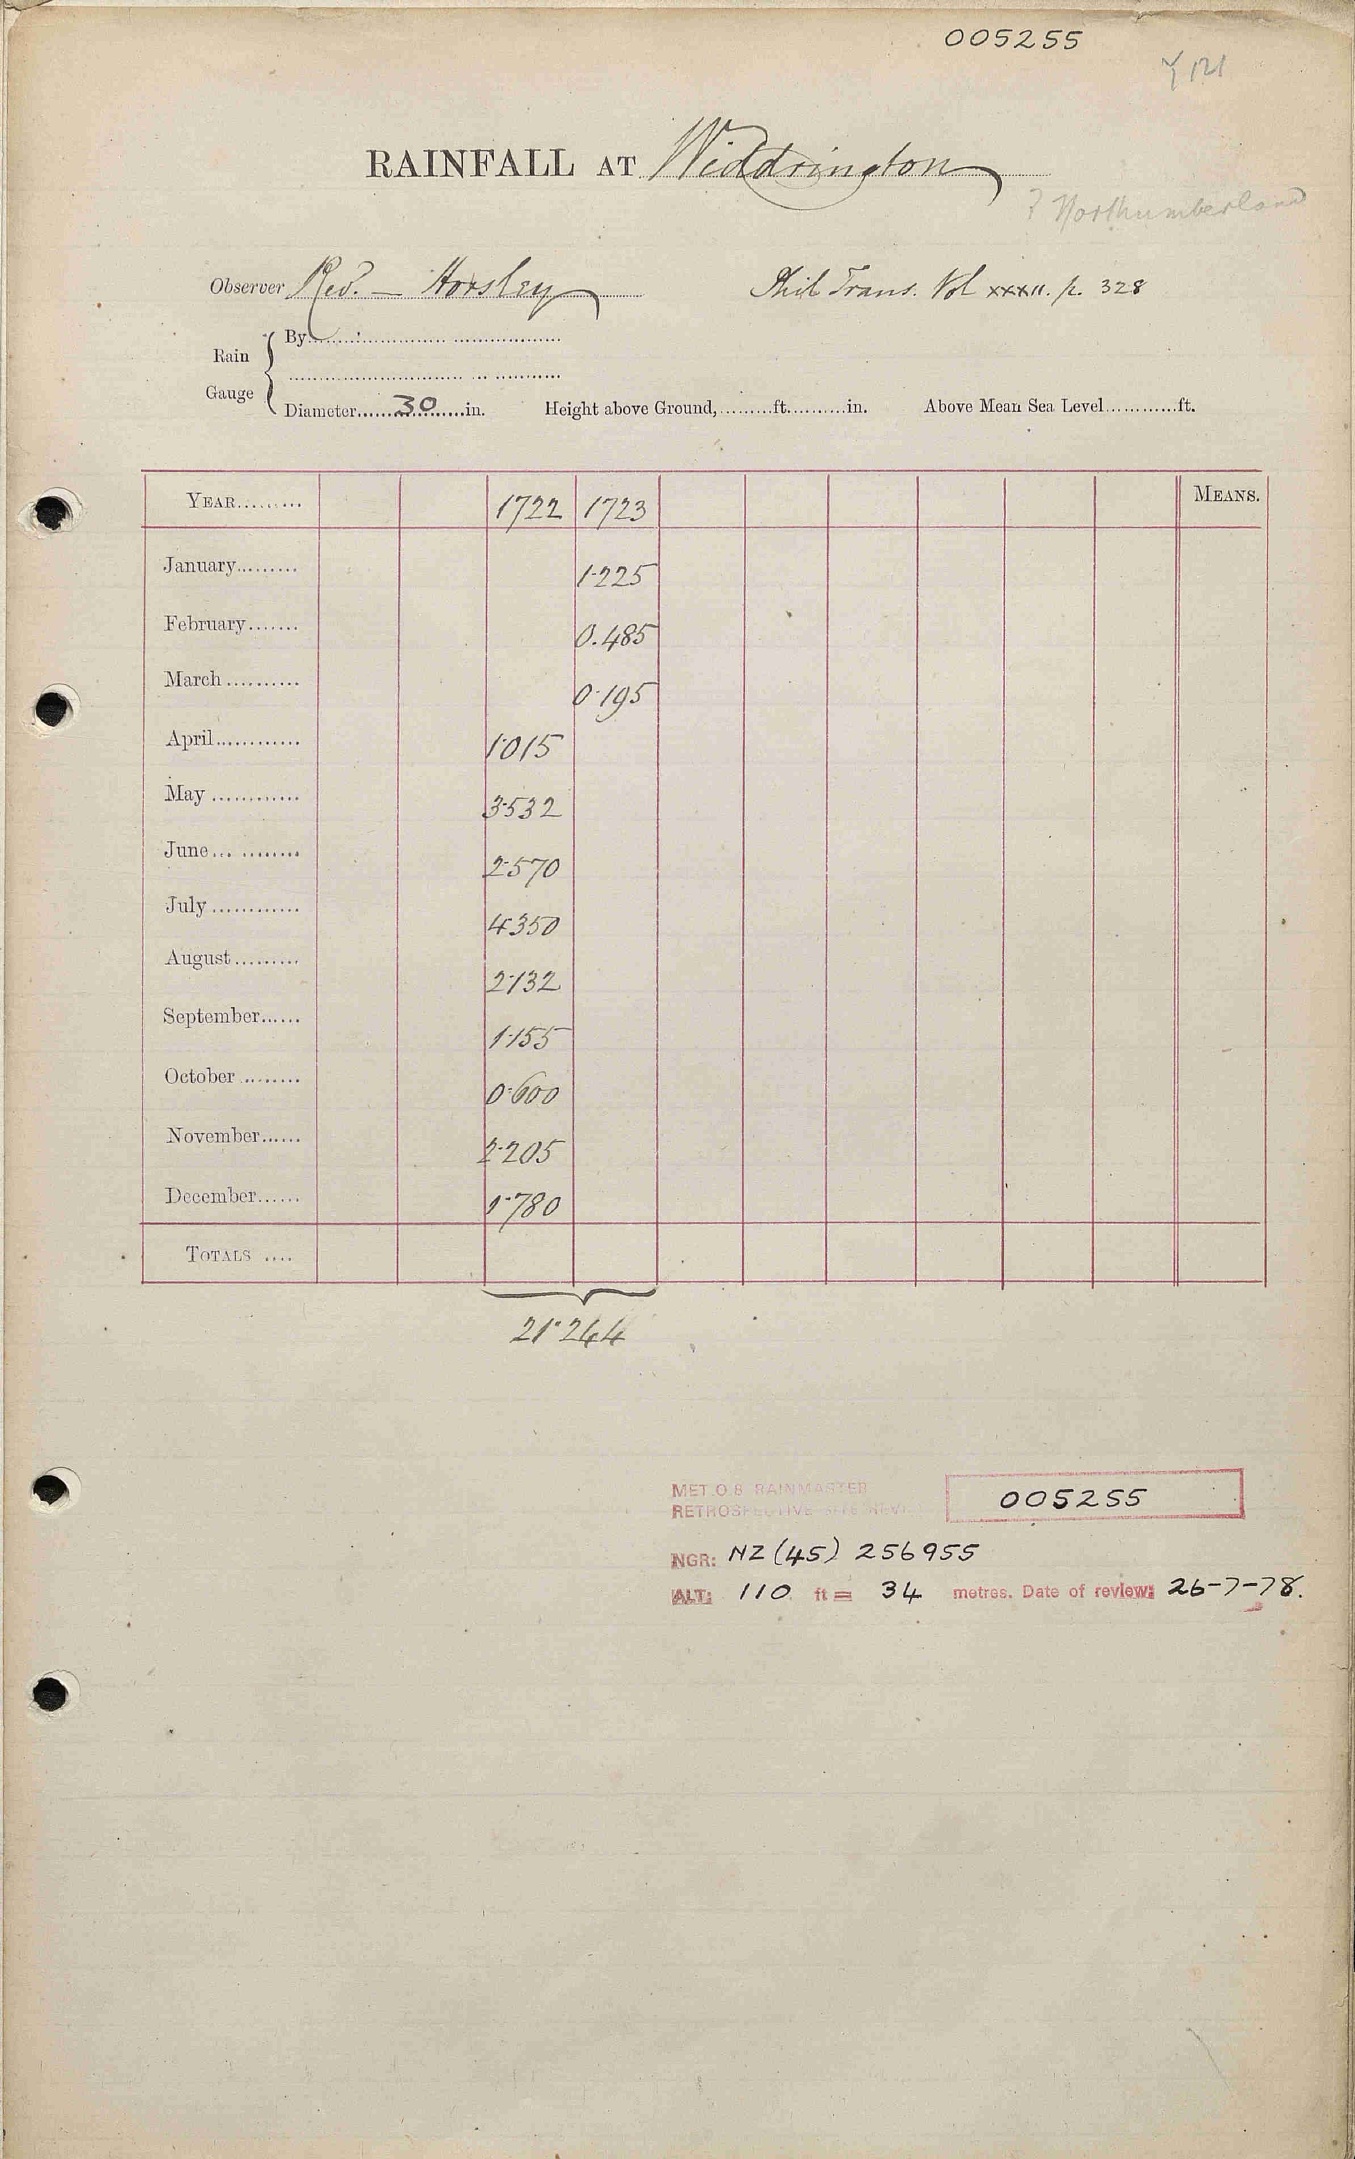 005255
RAINFALL AT Widdrington
? Northumberland
Observer Rev. — Horsley
Phil Trans. Vol xxxii. p. 328
Rain Gauge
By
Diameter 30 in. Height above Ground, ft. in. Above Mean Sea Level ft.
YEAR 1722 1723 MEANS.
January 1.225
February 0.485
March 0.195
April 1.015
May 3.532
June 2.570
July 4.350
August 2.132
September 1.155
October 0.600
November 2.205
December 1.780
TOTALS
21.244
MET.O 8 RAINMASTER
RETROSPECTIVE SITE REVIEW
005255
NGR: NZ (45) 256955
ALT: 110 ft = 34 metres. Date of review: 26-7-78.